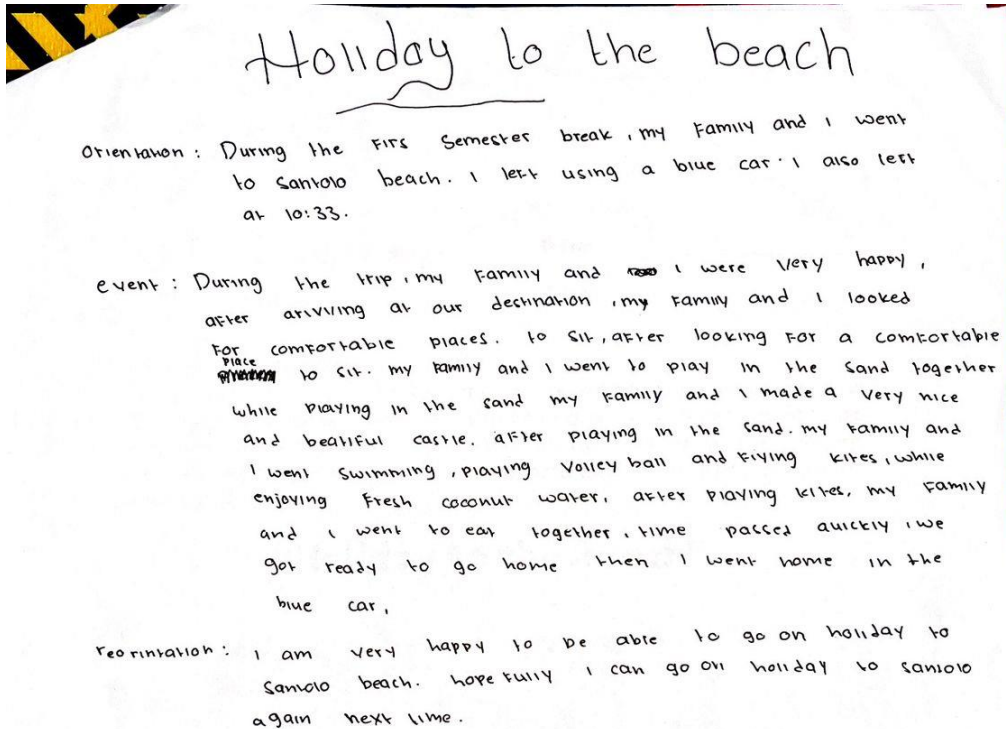 Holiday to the beach
Orientation : During the Firs Semester break , my Family and I went
to santolo beach. I left using a blue car. I also left
at 10:33.
event : During the trip , my Family and I were very happy ,
after arivving at our destination , my Family and I looked
For comfortable places. to sit , after looking For a comfortable
place to sit. my Family and I went to play in the sand together
while playing in the sand my Family and I made a very nice
and beatiful castle. after playing in the sand. my Family and
I went swimming , playing Volley ball and Flying kites , while
enjoying Fresh coconut water, after playing kites, my Family
and I went to eat together , time passed quickly , we
got ready to go home then I went home in the
blue car,
reorintation : I am very happy to be able to go on holiday to
santolo beach. hopefully I can go on holiday to santolo
again next time.